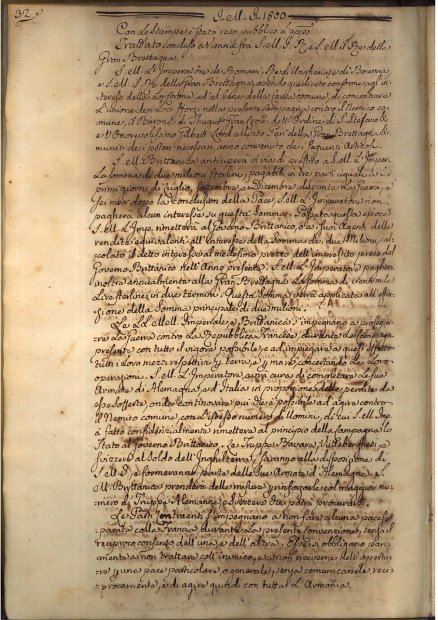 32
A.M.A. 1800
Con le Stampe è stato reso pubblico l'appo
Trattato concluso a Vienna fra S.M.I. R.e e S.M. il Re della
Gran Brettagna.
S.M. l'Imperatore de Romani, Re di Ungheria e di Boemia,
e S.M. il Re della Gran Brettagna, avendo giudicato conforme agl'in
teressi delle Corone, ed al bene della Causa comune di concertare
l'Unione de Forze nella presente Campagna contro il Nemico co
mune, il Barone di Thugut Gran Croce dell'Ordine di S. Stefano &
e l'Onorevolissimo Gilbert Lord Minto Pari della Gran Brettagna &
muniti de i poteri necessari anno convenuto de i seguenti Articoli.
S.M. Brittanica anticiperà in via di prestito a S.M. l'Imper.
la somma di due milioni Sterlini, pagabile in tre parti uguali a i
primi giorni di Luglio, Settembre, e Dicembre durante la Guerra, e
sei mesi dopo la conclusione della Pace, S.M. l'Imperatore non
pagherà alcun interesse su questa Somma. Passata questa epoca
S.M. Imp. rimetterà al Governo Brittanico, o a i suoi Agenti delle
rendite equivalenti all'Interesse della Somma de due Milioni, cal
colato il detto interesse al medesimo prezzo dell'imprestito preso dal
Governo Brittanico nell'Anno presente. S.M. l'Imperatore pagherà
inoltre annualmente alla Gran Brettagna la Somma di cento mile
Lire sterline in due termini. Questa Somma verrà applicata all'estin
zione della Somma principale di due milioni.
Le LL. MM. Imperiale, e Brittanica s'impegnano a prosegui
re la Guerra contro la Republica Francese durante la Campagna
presente con tutto il vigore possibile e ad impiegare a quest'effetto
tutti i loro mezzi rispettivi per terra, e per mare, concertando le loro
operazioni. S.M. l'Imperatore avrà cura di completare le sue
Armate di Alemagna, e d'Italia in proporzione delle perdite da
esse sofferte, onde continovare più che è possibile ad agire contro
il Nemico comune, con l'istesso numero di Uomini, di cui S.M. Imp.
à fatto confidenzialmente rimettere al principio della Campagna lo
Stato al Governo Brittanico. Le Truppe Bavare, Vittemberghesi, e
Svizzere al Soldo dell'Inghilterra, saranno alla disposizione di
S.M. I., e formeranno parte delle sue Armate d'Alemagna. S.
M. Brittanica prenderà delle misure per rinforzarle col maggior nu
mero di Truppe Alemanne, e Svizzere che potrà procurarsi.
Le Parti contraenti s'impegnano a non fare alcuna pace se
parata colla Francia durante la presente Convenzione, senza il
reciproco consenso dell'una, e dell'altra. Esse si obbligano pari
mente a non trattare coll'inimico, e a non ricevere dell'apertu
re per una pace particolare, o generale, senza comunicarsele reci
procamente, e di agire quindi con tutta l'Armonia.